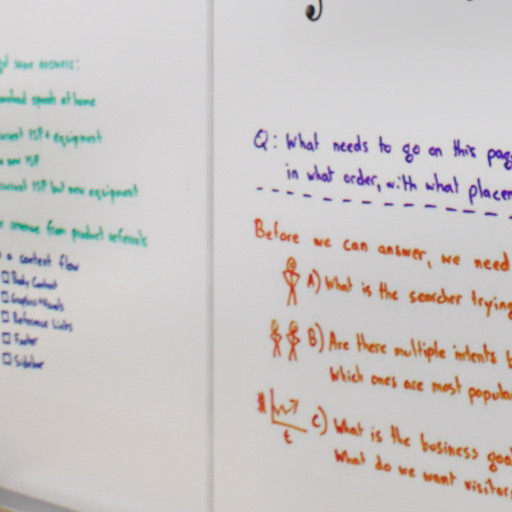 some answers:
speeds at home
current ISP + equipment
new ISP
current ISP but new equipment
revenue from product referrals
a content flow
Body Content
Graphics/Visuals
Reference Links
Footer
Sidebar
Q: What needs to go on this pag
in what order, with what placem
Before we can answer, we need
A) What is the searcher trying
B) Are there multiple intents b
Which ones are most popular
t
C) What is the business goa
What do we want visitors